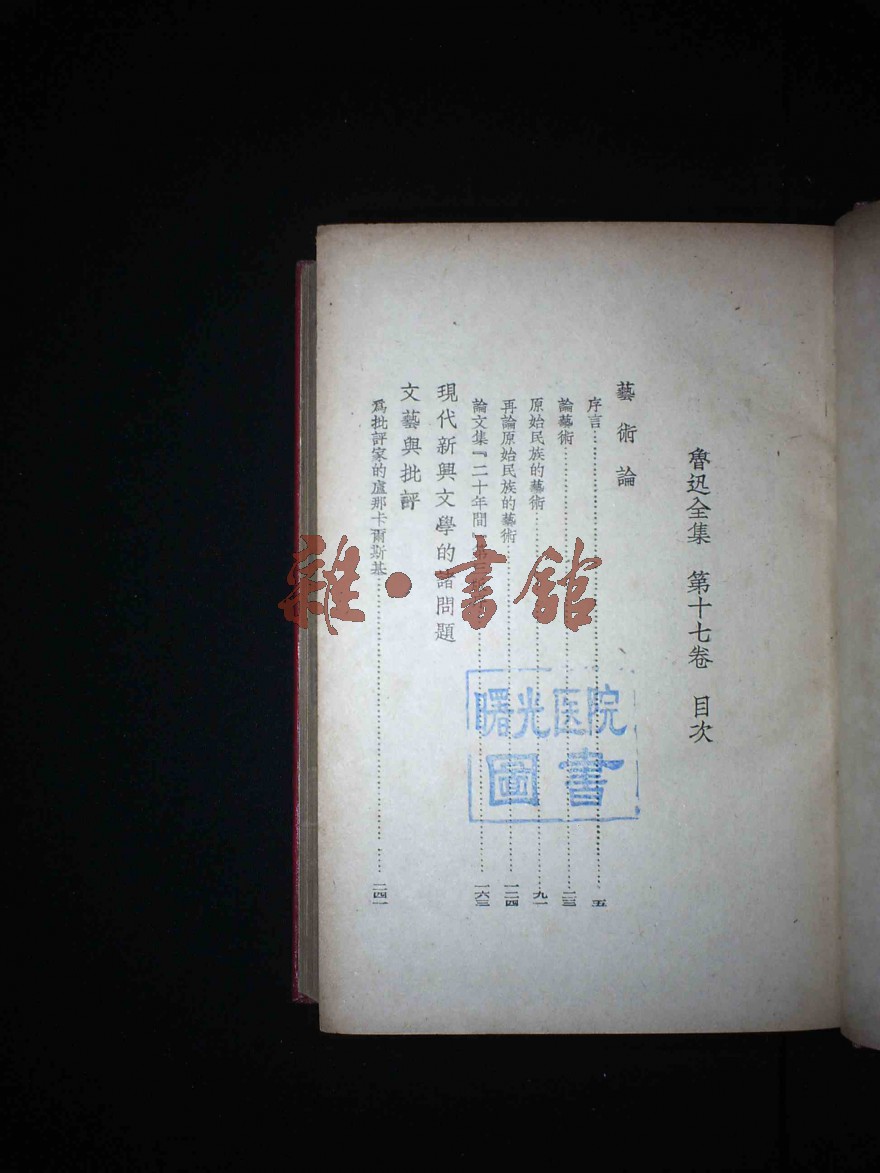 魯迅全集 第十七卷 目次
藝術論
序言……五
論藝術……二三
原始民族的藝術……九一
再論原始民族的藝術……一二四
論文集『二十年間』……一六三
現代新興文學的諸問題
文藝與批評
爲批評家的盧那卡爾斯基……二四一
曙光医院
圖書
雜·書館